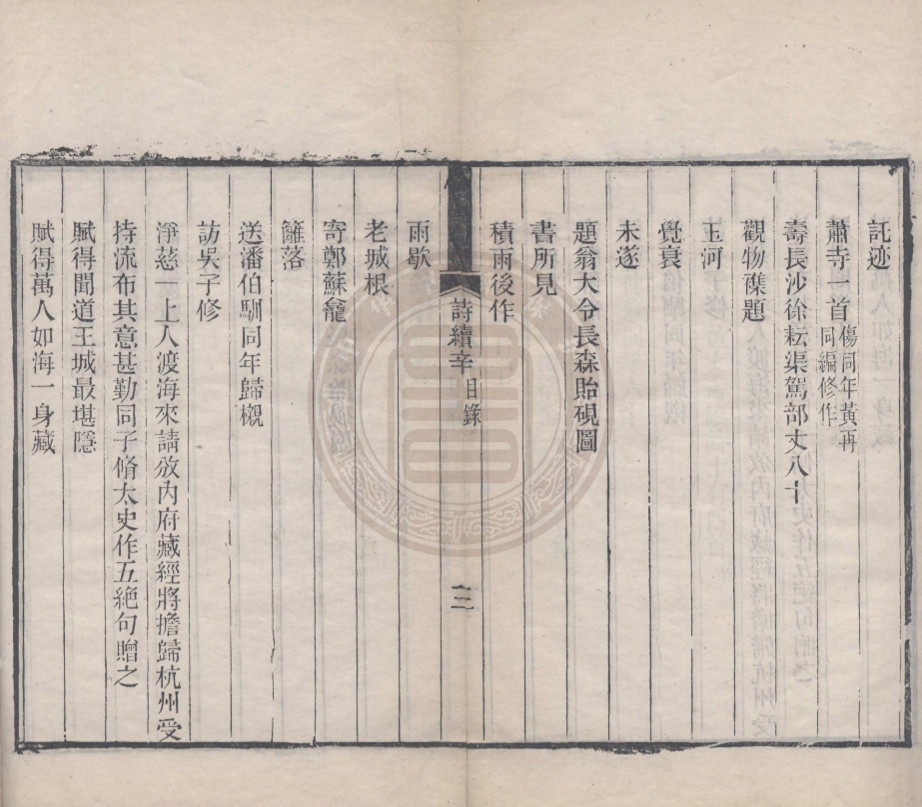 託迹
蕭寺一首傷同年黃再
同編修作
壽長沙徐耘渠駕部丈八十
觀物雜題
玉河
覺衰
未遂
題翁大令長森貽硯圖
書所見
積雨後作
詩續辛目錄
三
雨歇
老城根
寄鄭蘇龕
籬落
送潘伯馴同年歸櫬
訪吳子修
淨慈一上人渡海來請放內府藏經將擔歸杭州受
持流布其意甚勤同子脩太史作五絕句贈之
賦得聞道王城最堪隱
賦得萬人如海一身藏